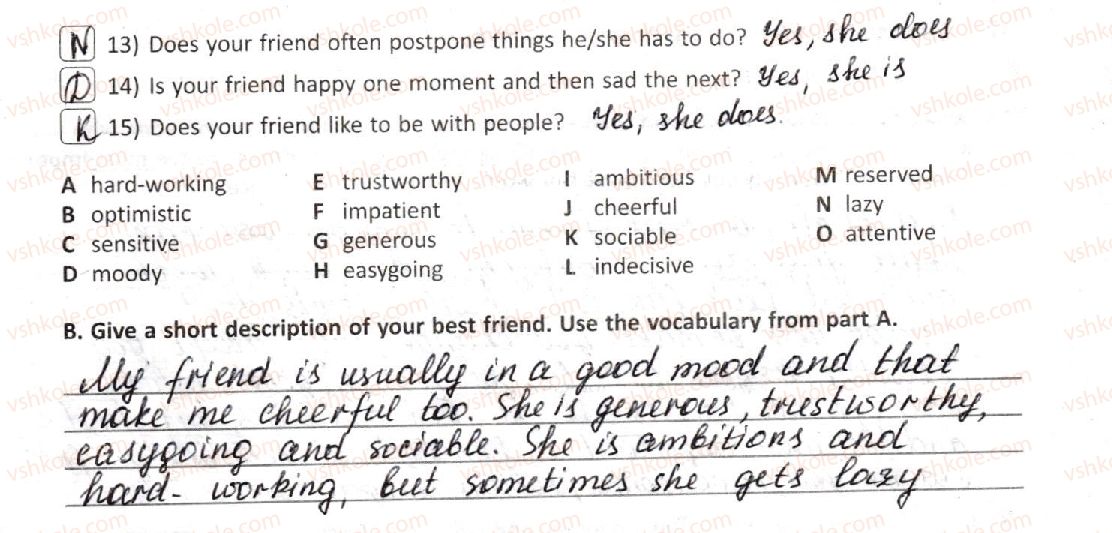 N 13) Does your friend often postpone things he/she has to do? Yes, she does
D 14) Is your friend happy one moment and then sad the next? Yes, she is
K 15) Does your friend like to be with people? Yes, she does.
A hard-working E trustworthy I ambitious M reserved
B optimistic F impatient J cheerful N lazy
C sensitive G generous K sociable O attentive
D moody H easygoing L indecisive
B. Give a short description of your best friend. Use the vocabulary from part A.
My friend is usually in a good mood and that
make me cheerful too. She is generous, trustworthy,
easygoing and sociable. She is ambitions and
hard- working, but sometimes she gets lazy
vshkole.com